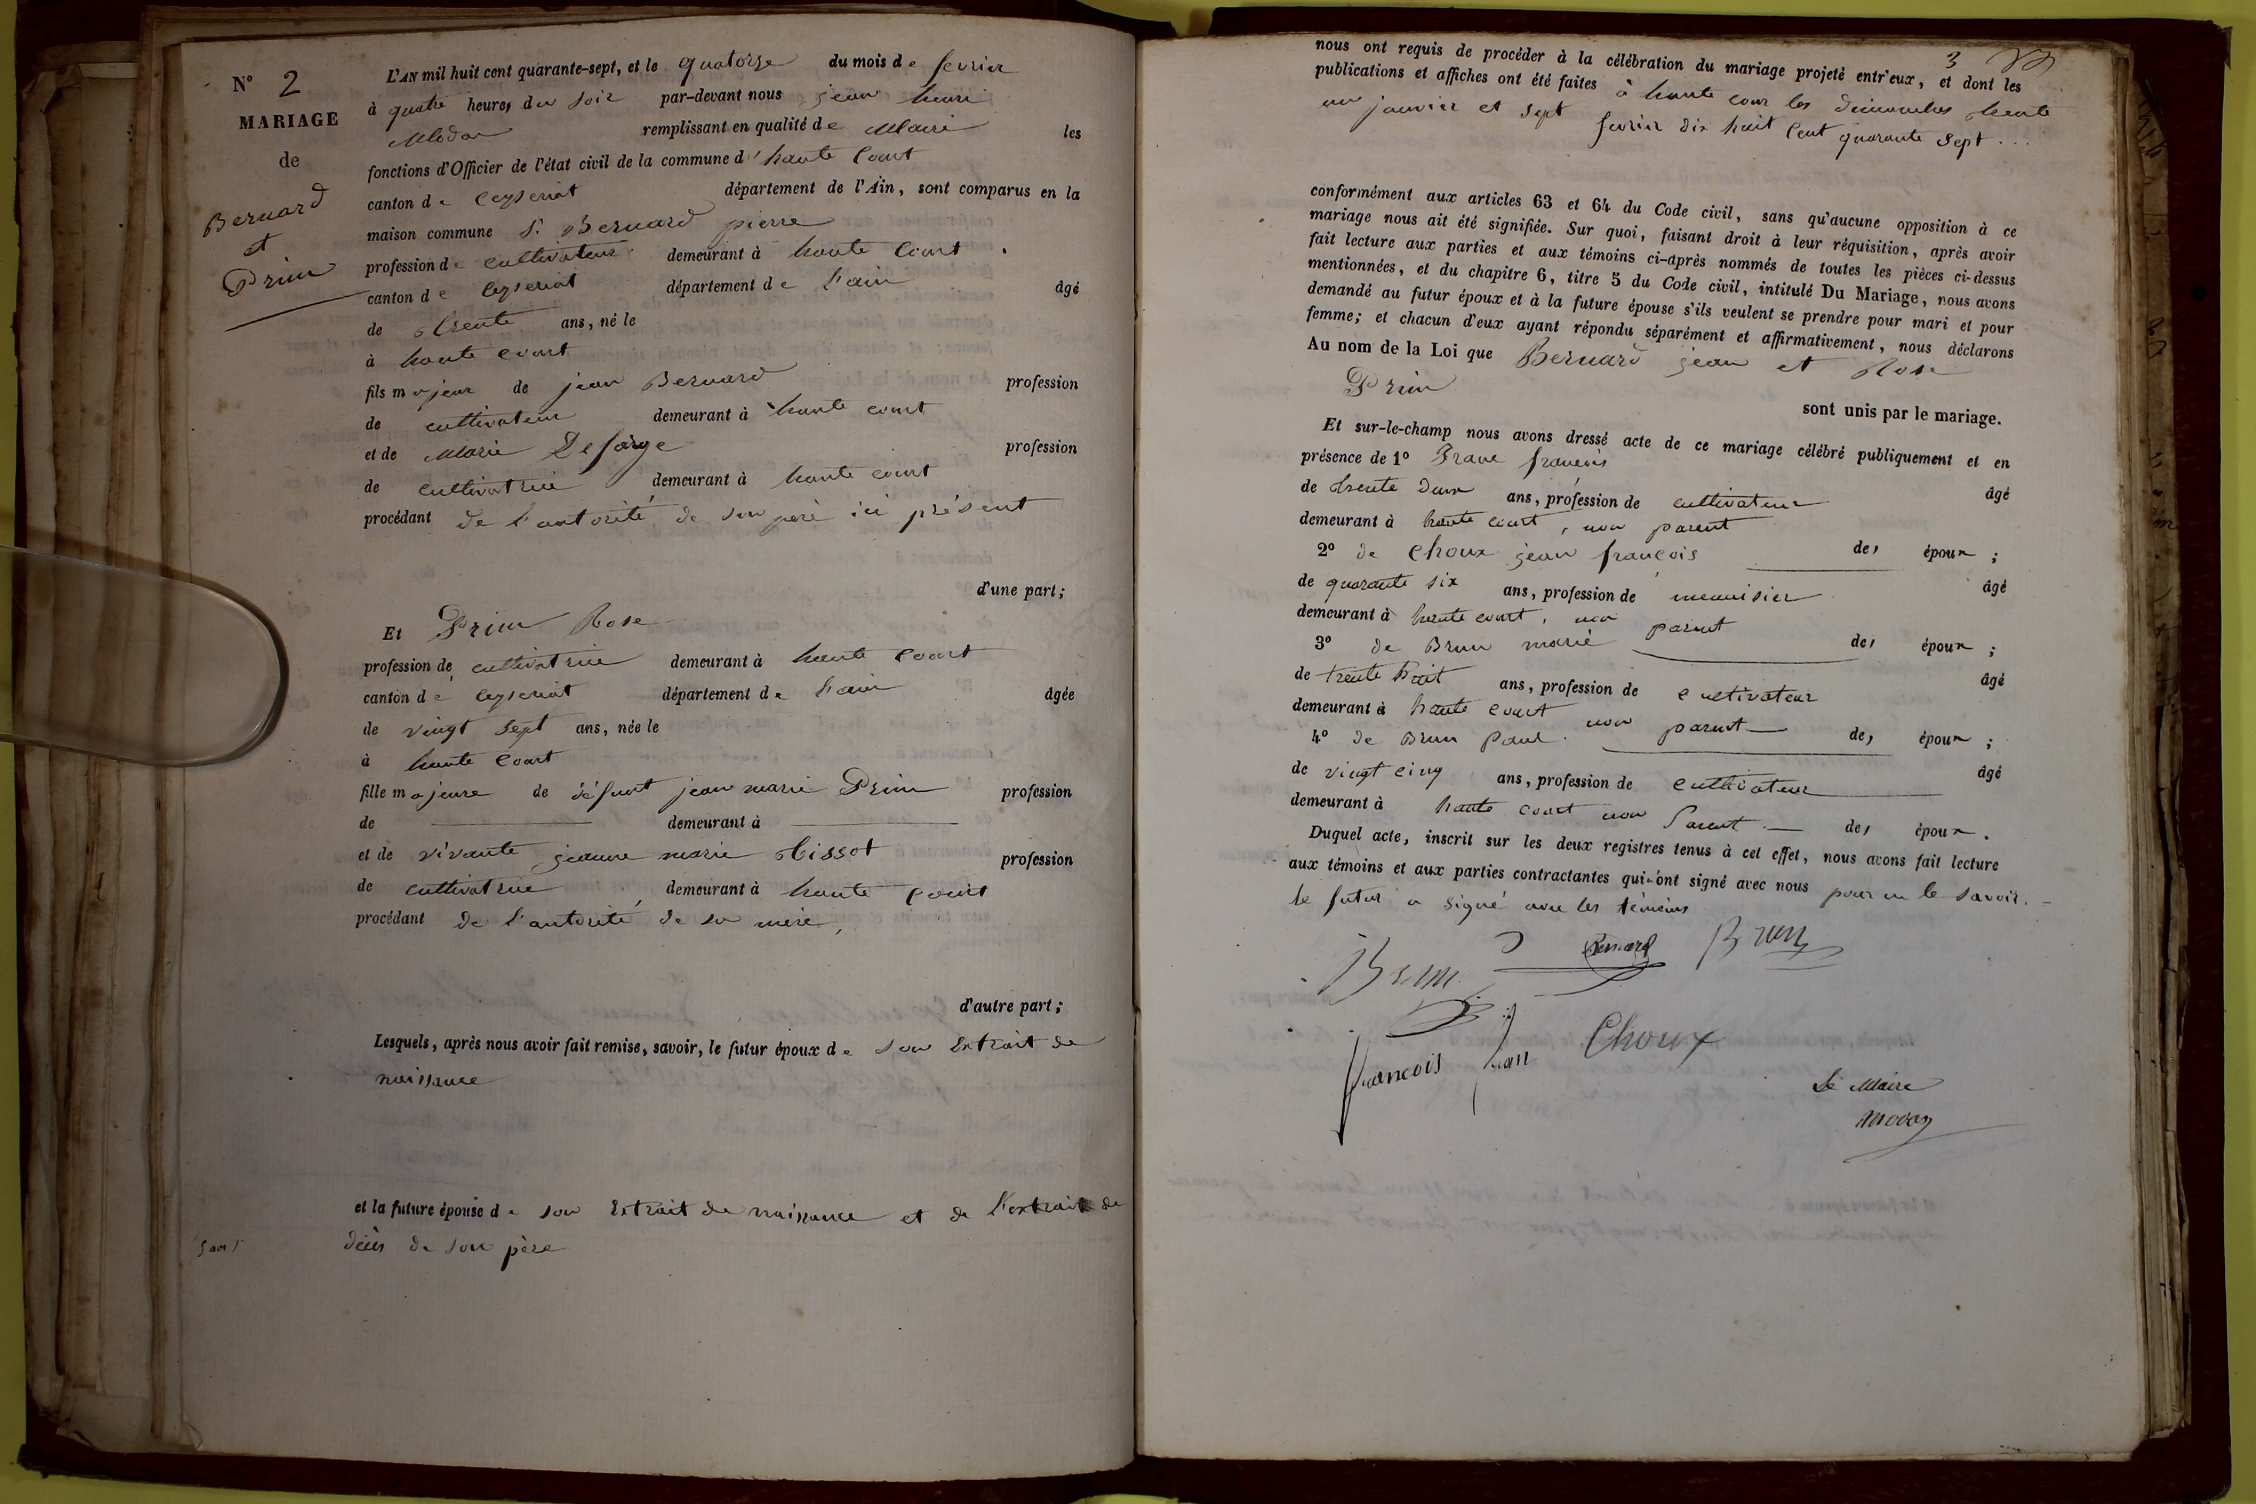 N° 2
MARIAGE
de
Bernard
et
Prim
L'AN mil huit cent quarante-sept, et le quatorze du mois de fevrier
à quatre heures du soir par-devant nous jean henri
Modas remplissant en qualité de Maire les
fonctions d'Officier de l'état civil de la commune d'haute Court
canton de Ceyseriat département de l'Ain, sont comparus en la
maison commune Sr Bernard pierre
profession de cultivateur demeurant à haute Court
canton de Ceyseriat département de l'ain âgé
de trente ans, né le
à haute Court
fils majeur de jean Bernard profession
de cultivateur demeurant à haute court
et de Marie Defarge profession
de cultivatrice demeurant à haute court
procédant de l'autorité de son père ici présent
d'une part;
Et Prim Rose
profession de cultivatrice demeurant à haute Court
canton de Ceyseriat département de l'ain âgée
de vingt sept ans, née le
à haute Court
fille majeure de défunt jean marie Prim profession
de demeurant à
et de vivante jeanne marie Tissot profession
de cultivatrice demeurant à haute Court
procédant de l'autorité de sa mère,
d'autre part;
Lesquels, après nous avoir fait remise, savoir, le futur époux de son Extrait de
naissance
et la future épouse de son Extrait de naissance et de l'extrait de
décès de son père
3
nous ont requis de procéder à la célébration du mariage projeté entr'eux, et dont les
publications et affiches ont été faites à haute cour les dimanches trente
un janvier et sept fevrier dix huit Cent quarante sept...
conformément aux articles 63 et 64 du Code civil, sans qu'aucune opposition à ce
mariage nous ait été signifiée. Sur quoi, faisant droit à leur réquisition, après avoir
fait lecture aux parties et aux témoins ci-après nommés de toutes les pièces ci-dessus
mentionnées, et du chapitre 6, titre 5 du Code civil, intitulé Du Mariage, nous avons
demandé au futur époux et à la future épouse s'ils veulent se prendre pour mari et pour
femme; et chacun d'eux ayant répondu séparément et affirmativement, nous déclarons
Au nom de la Loi que Bernard jean et Rose
Prim
sont unis par le mariage.
Et sur-le-champ nous avons dressé acte de ce mariage célébré publiquement et en
présence de 1° françois âgé
de trente deux ans, profession de cultivateur
demeurant à haute court, non parent des époux;
2° de Choux jean françois âgé
de quarante six ans, profession de menuisier
demeurant à haute court, non parent des époux;
3° de Brun marie âgé
de trente huit ans, profession de cultivateur
demeurant à haute court non parent des époux;
4° de Brun Paul âgé
de vingt cinq ans, profession de cultivateur
demeurant à haute court non Parent des époux.
Duquel acte, inscrit sur les deux registres tenus à cet effet, nous avons fait lecture
aux témoins et aux parties contractantes qui ont signé avec nous pour en le savoir.
le futur a signé avec les témoins
Brun Bernard Brun
françois Choux
Le Maire